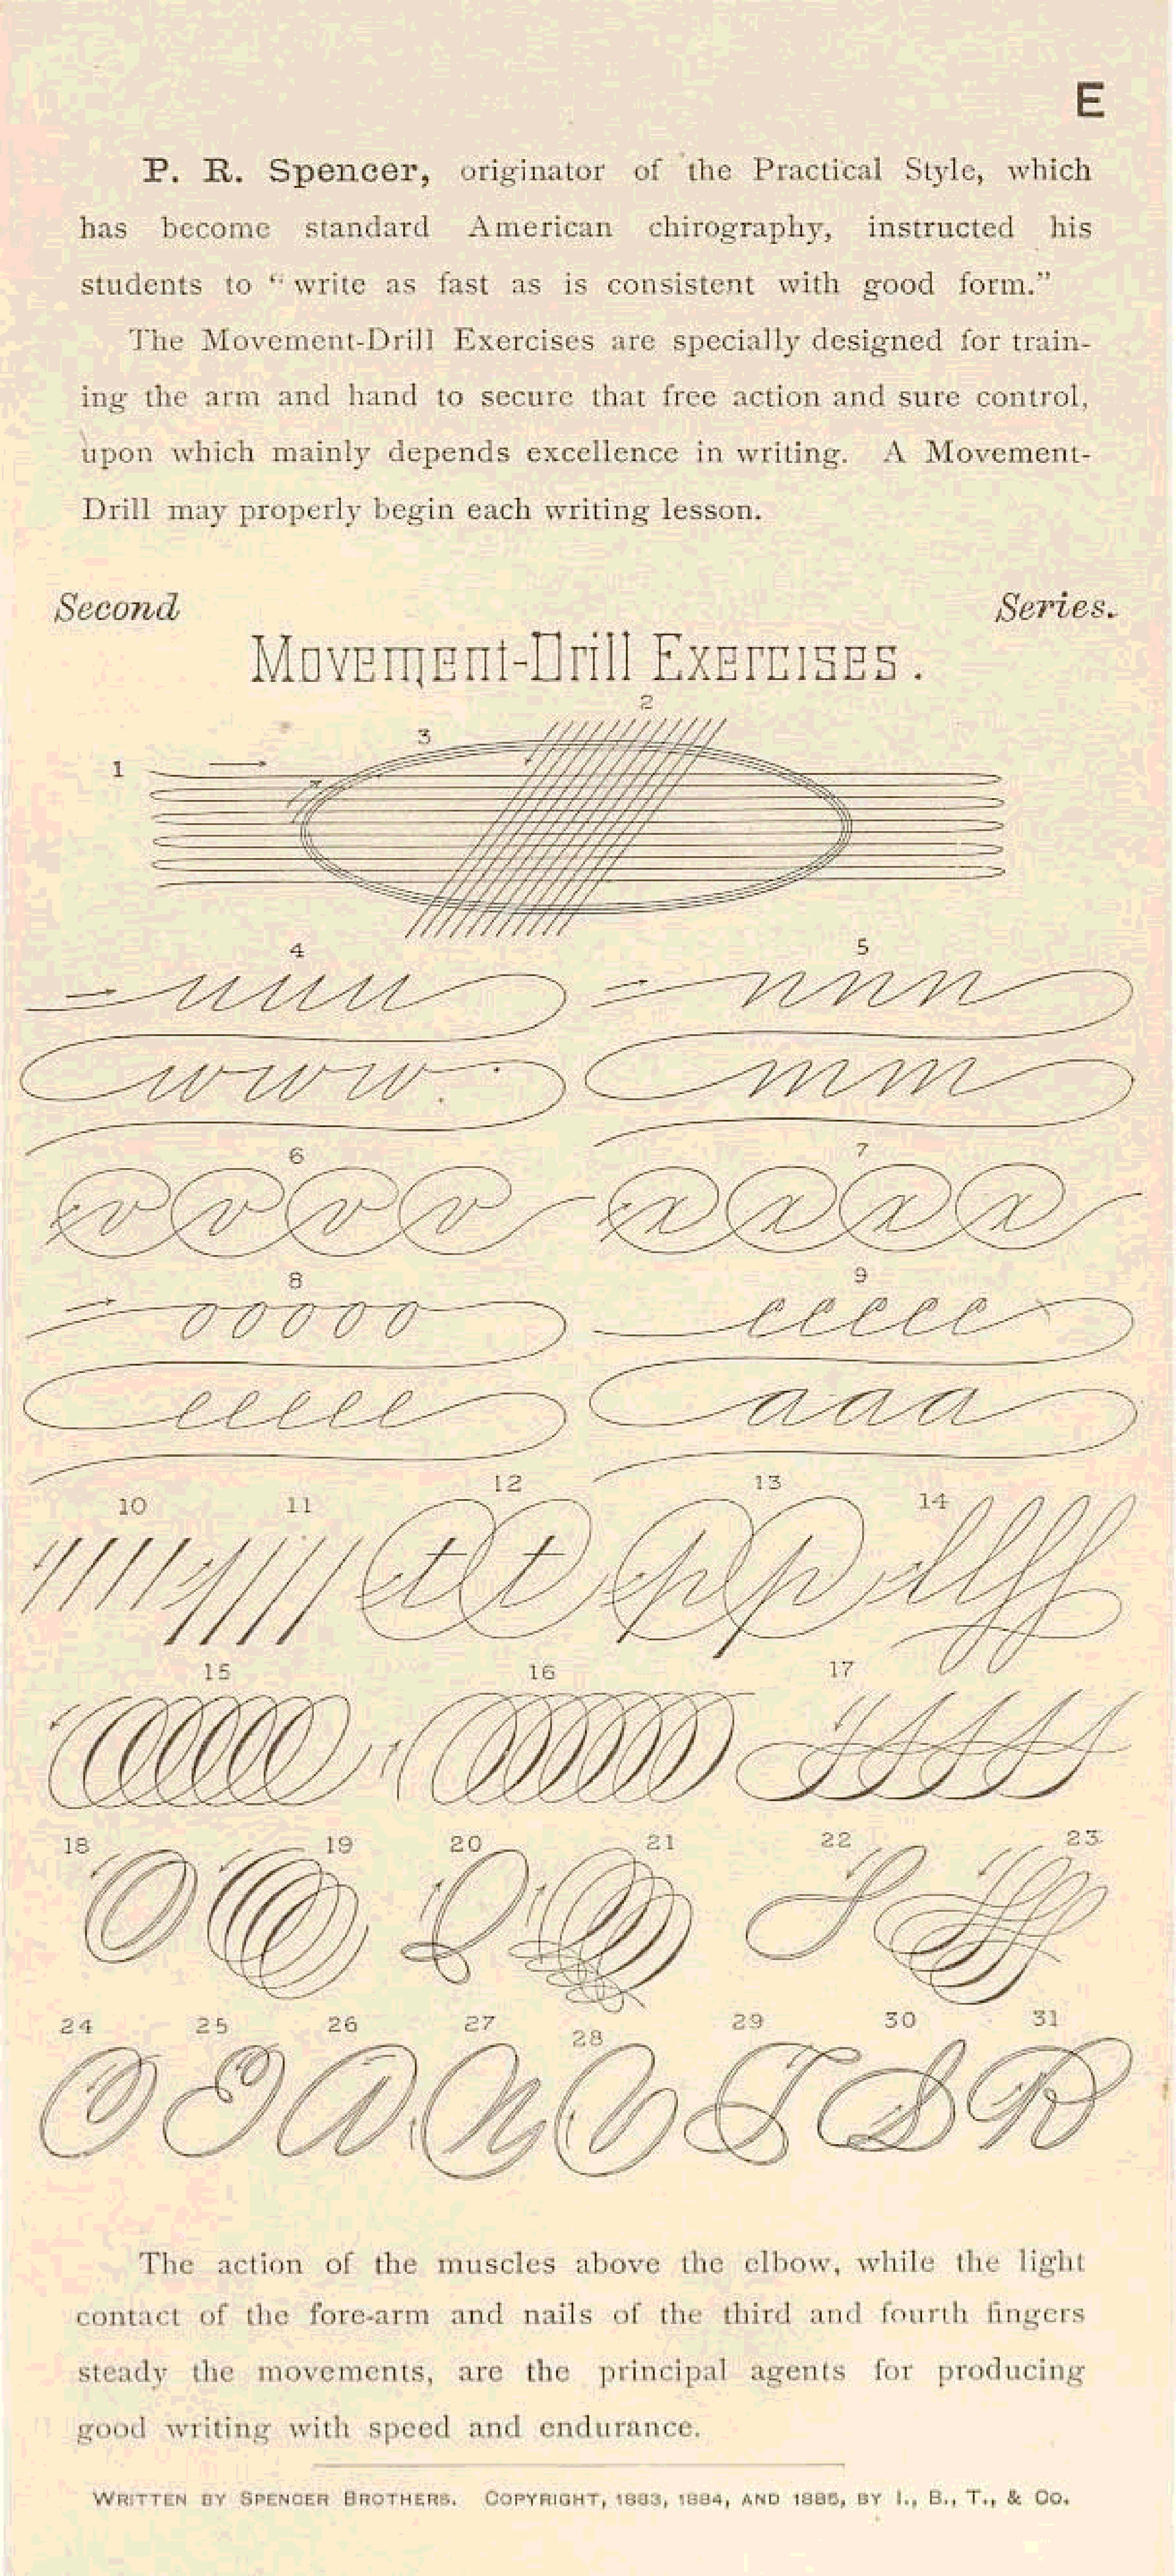 E
P. R. Spencer, originator of the Practical Style, which
has become standard American chirography, instructed his
students to “write as fast as is consistent with good form.”
The Movement-Drill Exercises are specially designed for train-
ing the arm and hand to secure that free action and sure control,
upon which mainly depends excellence in writing. A Movement-
Drill may properly begin each writing lesson.
Second Series.
Movement-Drill Exercises.
2
3
1
4 5
uuu nnn
www mm
6 7
vvvv xxxx
8 9
ooooo ccccc
eeeee aaa
12 13
10 11 14
tt pp
15 16 17
18 19 20 21 22 23
24 25 26 27 28 29 30 31
The action of the muscles above the elbow, while the light
contact of the fore-arm and nails of the third and fourth fingers
steady the movements, are the principal agents for producing
good writing with speed and endurance.
WRITTEN BY SPENCER BROTHERS. COPYRIGHT, 1883, 1884, AND 1885, BY I., B., T., & CO.